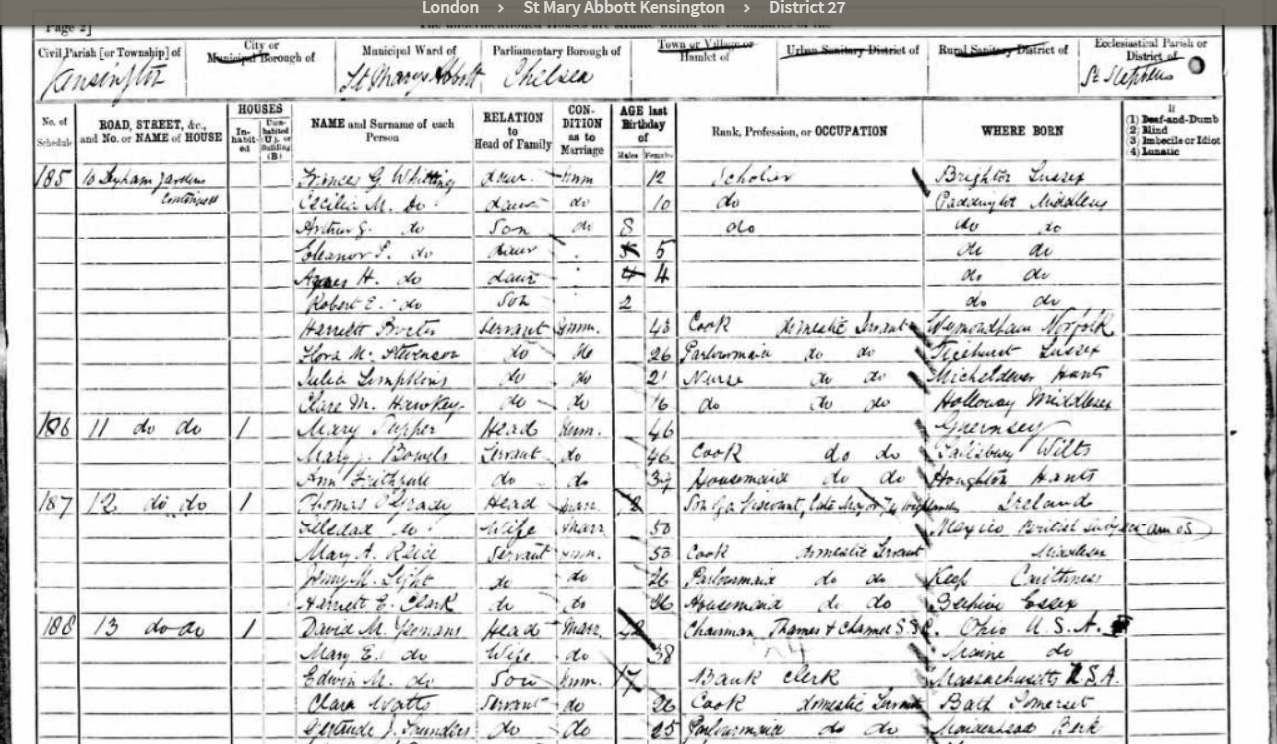 London › St Mary Abbott Kensington › District 27
Page 2]
Civil Parish [or Township] of
City or Municipal Borough of
Municipal Ward of
Parliamentary Borough of
Town or Village or Hamlet of
Urban Sanitary District of
Rural Sanitary District of
Ecclesiastical Parish or District of
Kensington St Mary Abbott Chelsea St Stephens
No. of Schedule
ROAD, STREET, &c., and No. or NAME of HOUSE
HOUSES
In-habit-ed
Un-inhabited (U.), or Building (B)
NAME and Surname of each Person
RELATION to Head of Family
CON-DITION as to Marriage
AGE last Birthday of
Males Females
Rank, Profession, or OCCUPATION
WHERE BORN
If
(1) Deaf-and-Dumb
(2) Blind
(3) Imbecile or Idiot
(4) Lunatic
185 10 Gardens Frances G. Whitting daur. unm 12 Scholar Brighton Sussex
continued Cecilia M. do daur do 10 do Paddington Middlesex
Arthur G. do Son do 8 do do do
Eleanor do daur 5 5 do do
Agnes H. do daur 4 4 do do
Robert E. do Son 2 do do
Harriett Servant unm. 43 Cook domestic Servant Wymondham Norfolk
Flora M. Stevenson do do 26 Parlourmaid do do Ticehurst Sussex
Julia Limpkins do do 21 Nurse do do Micheldever Hants
Clare M. Hawkey do do 16 do do do Holloway Middlesex
186 11 do do 1 Mary Tupper Head unm. 46 Guernsey
Mary J. Bowels Servant do 46 Cook do do Salisbury Wilts
Ann do do Housemaid do do Houghton Hants
187 12 do do 1 Thomas O'Grady Head marr. Son of a Viscount, late Major Highlanders Ireland
do Wife Marr 50 Mexico British Subject
Mary A. Servant unm. 53 Cook domestic Servant Middlesex
Jenny M. Light do do 26 Parlourmaid do do Caithness
Harriett E. Clark do do 36 Housemaid do do Essex
188 13 do do 1 David M. Yeomans Head Marr. 42 Chairman, Thames & Channel S.S.C. Ohio U.S.A.
Mary E. do Wife do 38 Maine do
Edwin M. do Son unm. 17 Bank Clerk Massachusetts U.S.A.
Clara Watts Servant do 26 Cook domestic Servant Bath Somerset
Gertrude J. Saunders do do 25 Parlourmaid do do Maidenhead Berk